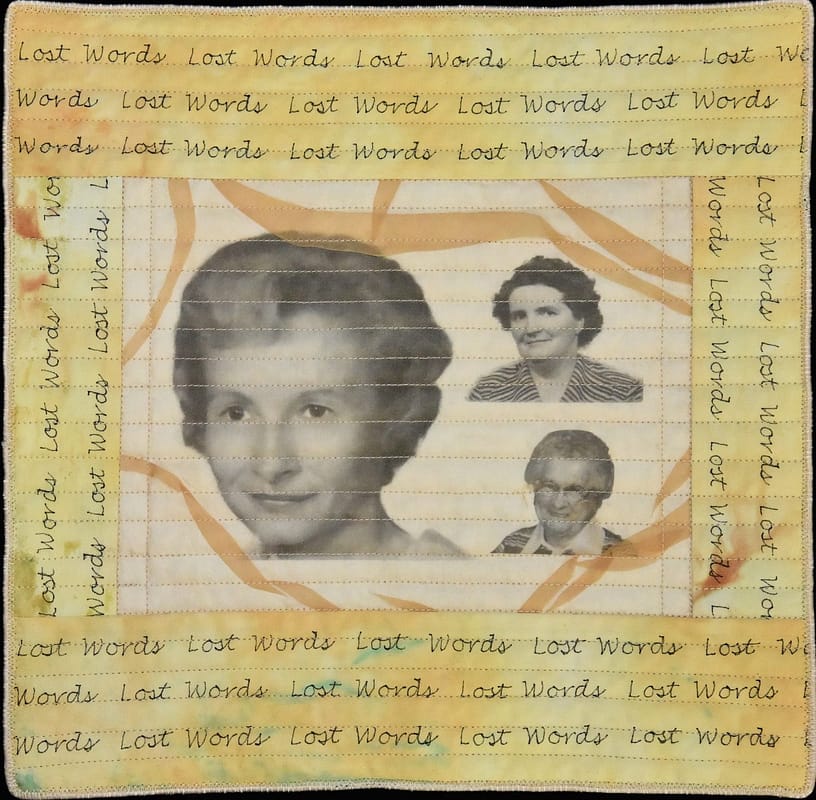 Lost Words Lost Words Lost Words Lost Words Lost
Words Lost Words Lost Words Lost Words Lost Words
Words Lost Words Lost Words Lost Words Lost Words
Lost Words Lost
Words Lost Words Lost Words
Words Lost Words Lost Words
Lost Words Lost Words Lost
Lost Words Lost Words Lost Words Lost Words Lost
Words Lost Words Lost Words Lost Words Lost Words
Words Lost Words Lost Words Lost Words Lost Words